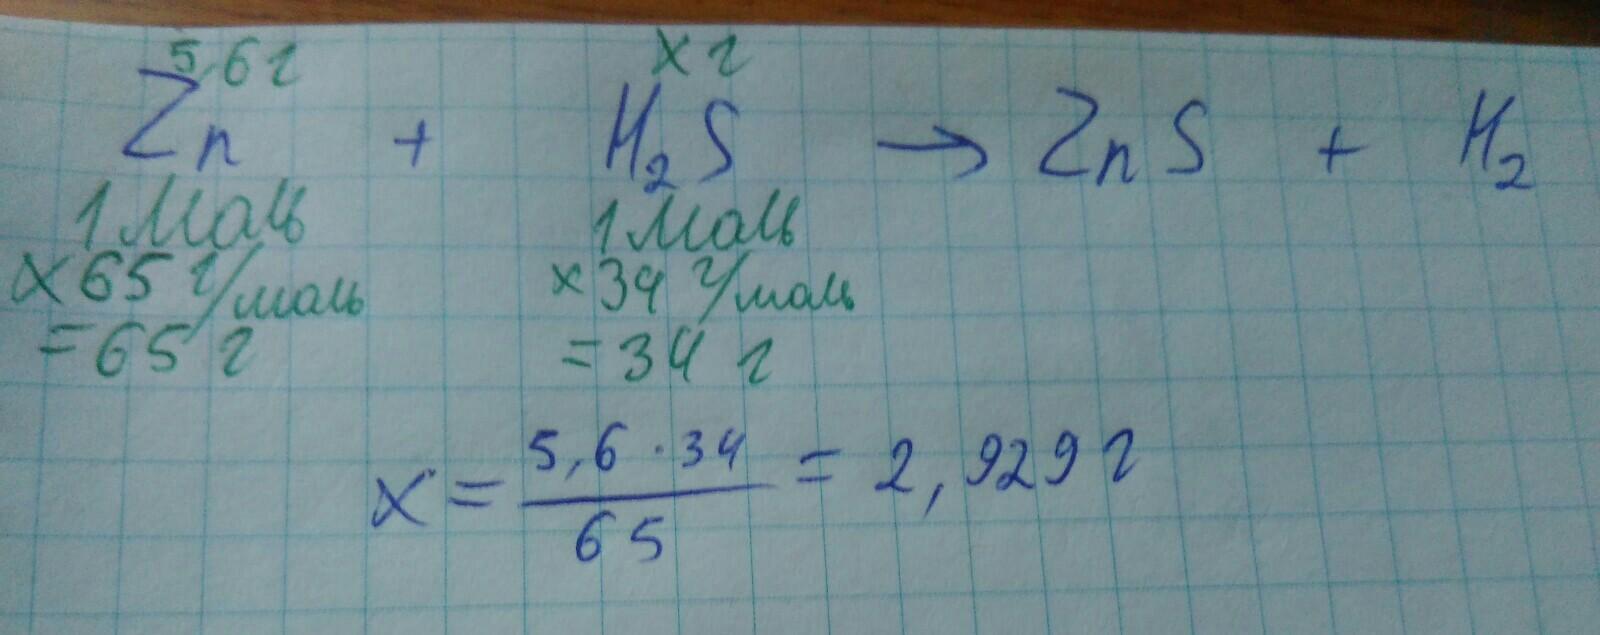 5,6 г x г
Zn + H₂S → ZnS + H₂
1 моль 1 моль
x 65 г/моль x 34 г/моль
= 65 г = 34 г
x = 5,6 · 34 / 65 = 2,929 г